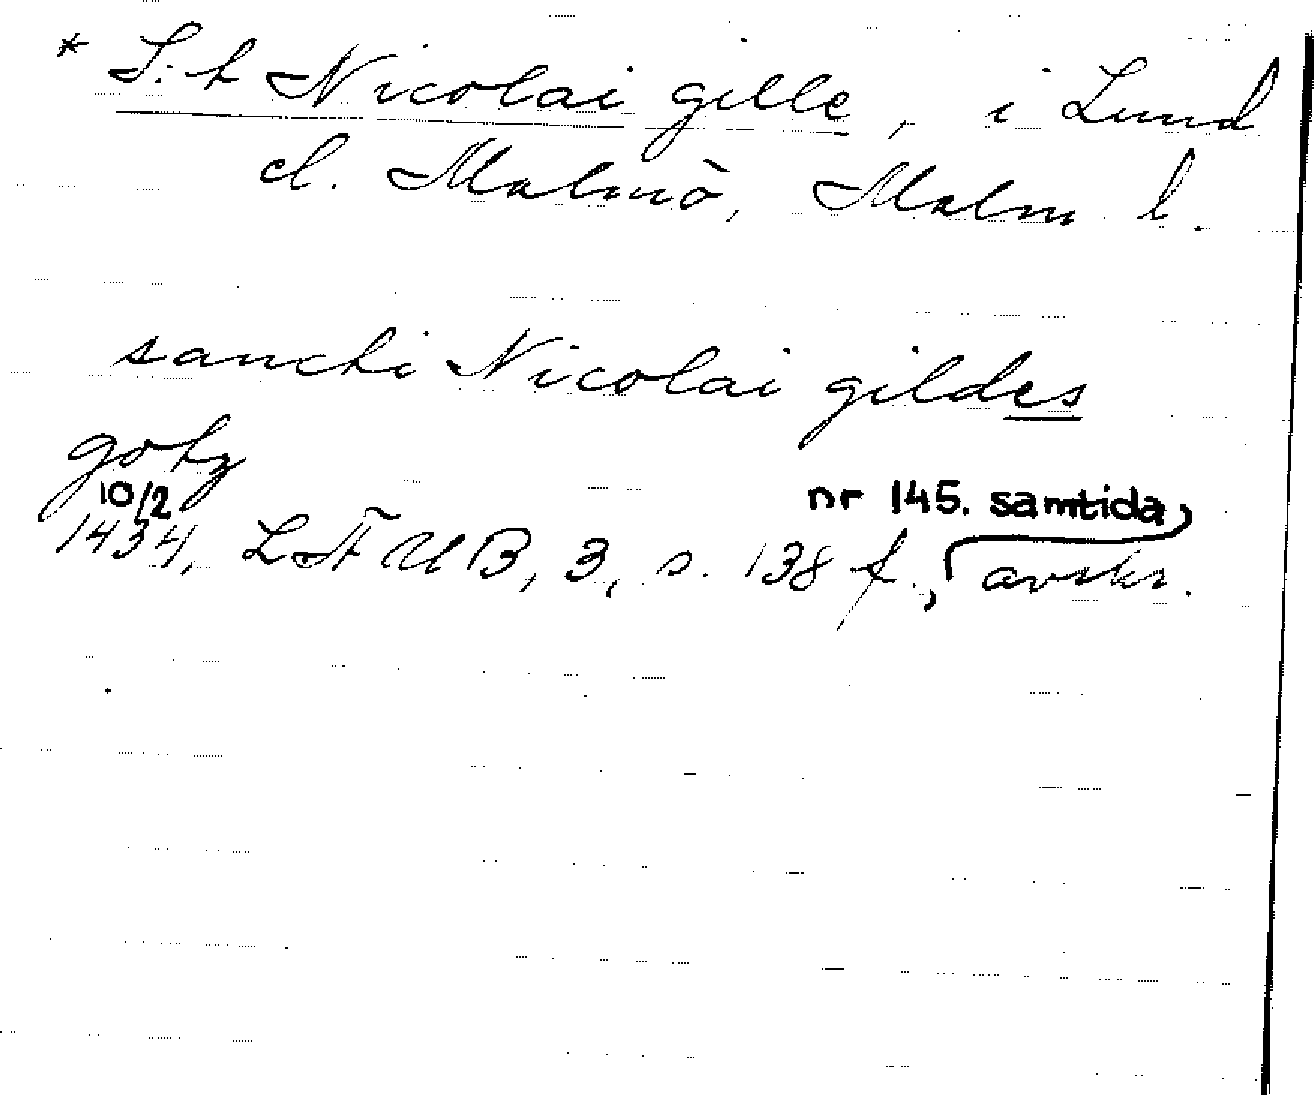 * S:t Nicolai gille, i Lund
el. Malmö, Malm l.
sancti Nicolai gildes
gotz
10/2 nr 145. samtida
1434, LÄUB, 3, s. 138 f., avskr.